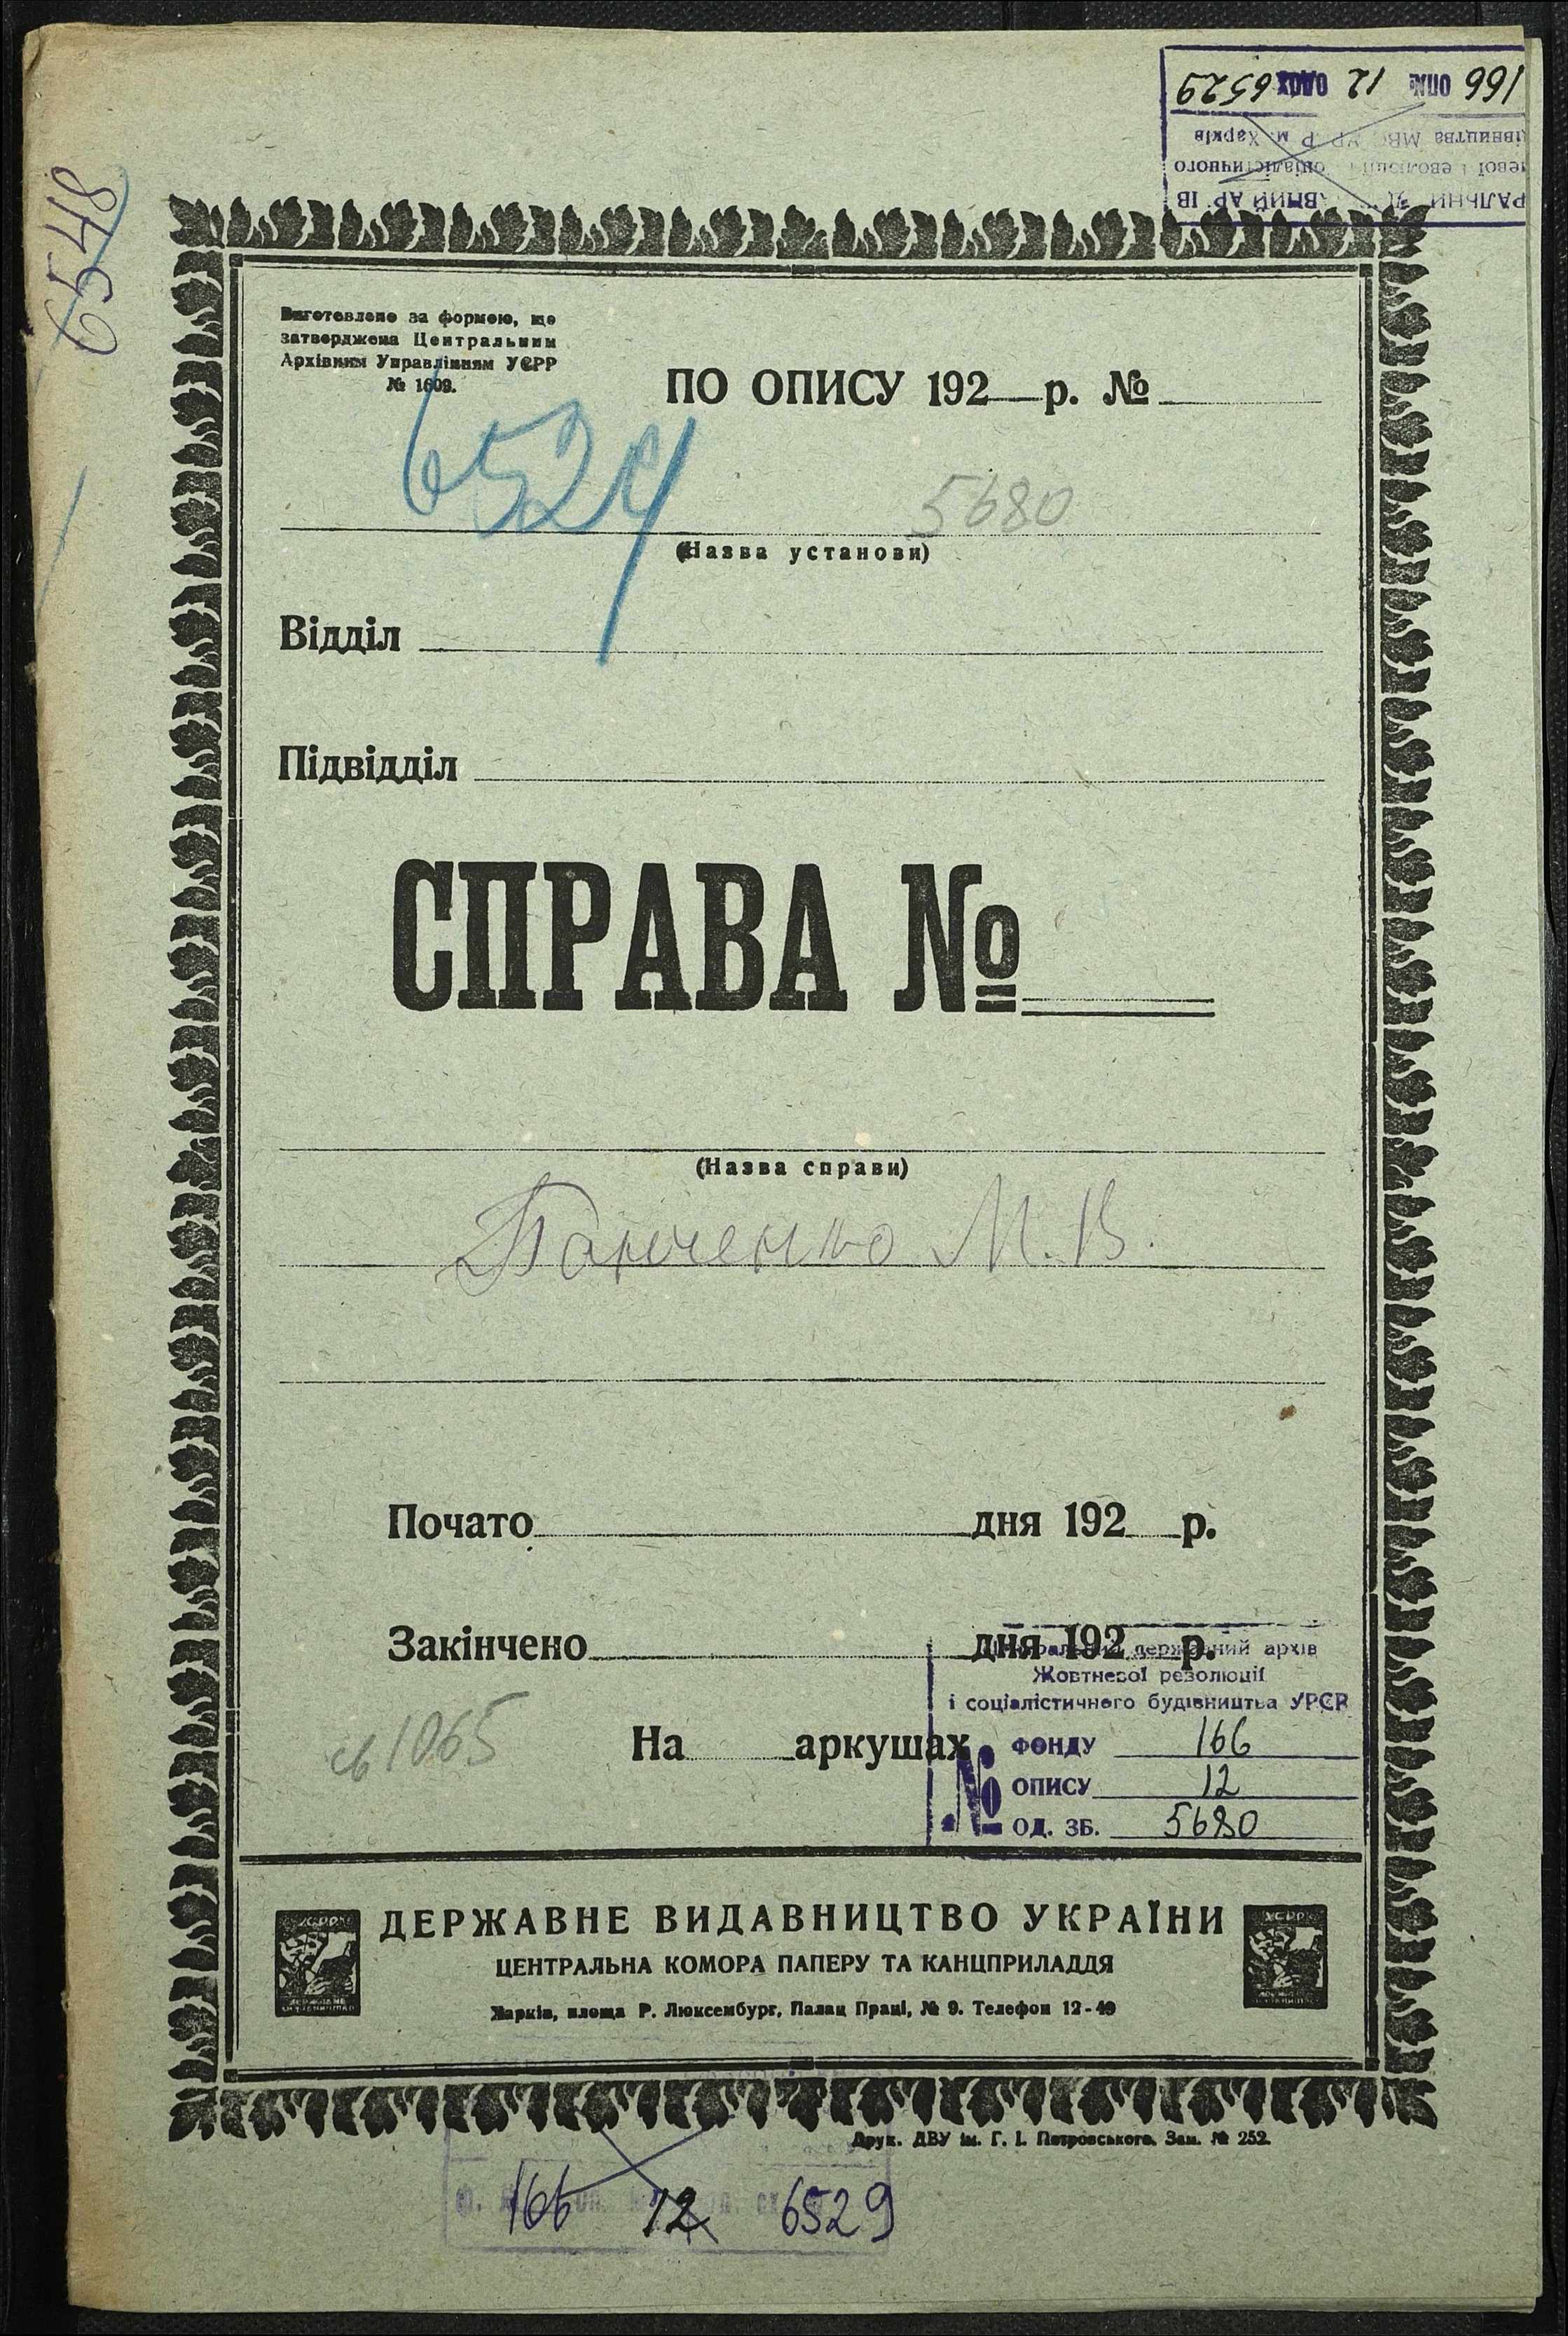 166 оп№ 12 од.зх 6529
м. Харків
6548
Виготовлено за формою, що
затверджена Центральним
Архівним Управлінням УСРР
№ 1609.
ПО ОПИСУ 192 р. №
6524
5680
(Назва установи)
Відділ
Підвідділ
СПРАВА №
(Назва справи)
Панченко М. В.
Почато дня 192 р.
Закінчено дня 192 р.
державний архів
Жовтневої революції
і соціалістичного будівництва УРСР
1065
На аркушах
№ ФОНДУ 166
ОПИСУ 12
ОД. ЗБ. 5680
ДЕРЖАВНЕ ВИДАВНИЦТВО УКРАЇНИ
ЦЕНТРАЛЬНА КОМОРА ПАПЕРУ ТА КАНЦПРИЛАДДЯ
Харків, площа Р. Люксембург, Палац Праці, № 9. Телефон 12-49
Друк. ДВУ ім. Г. І. Петровського. Зам. № 252.
166 12 6529